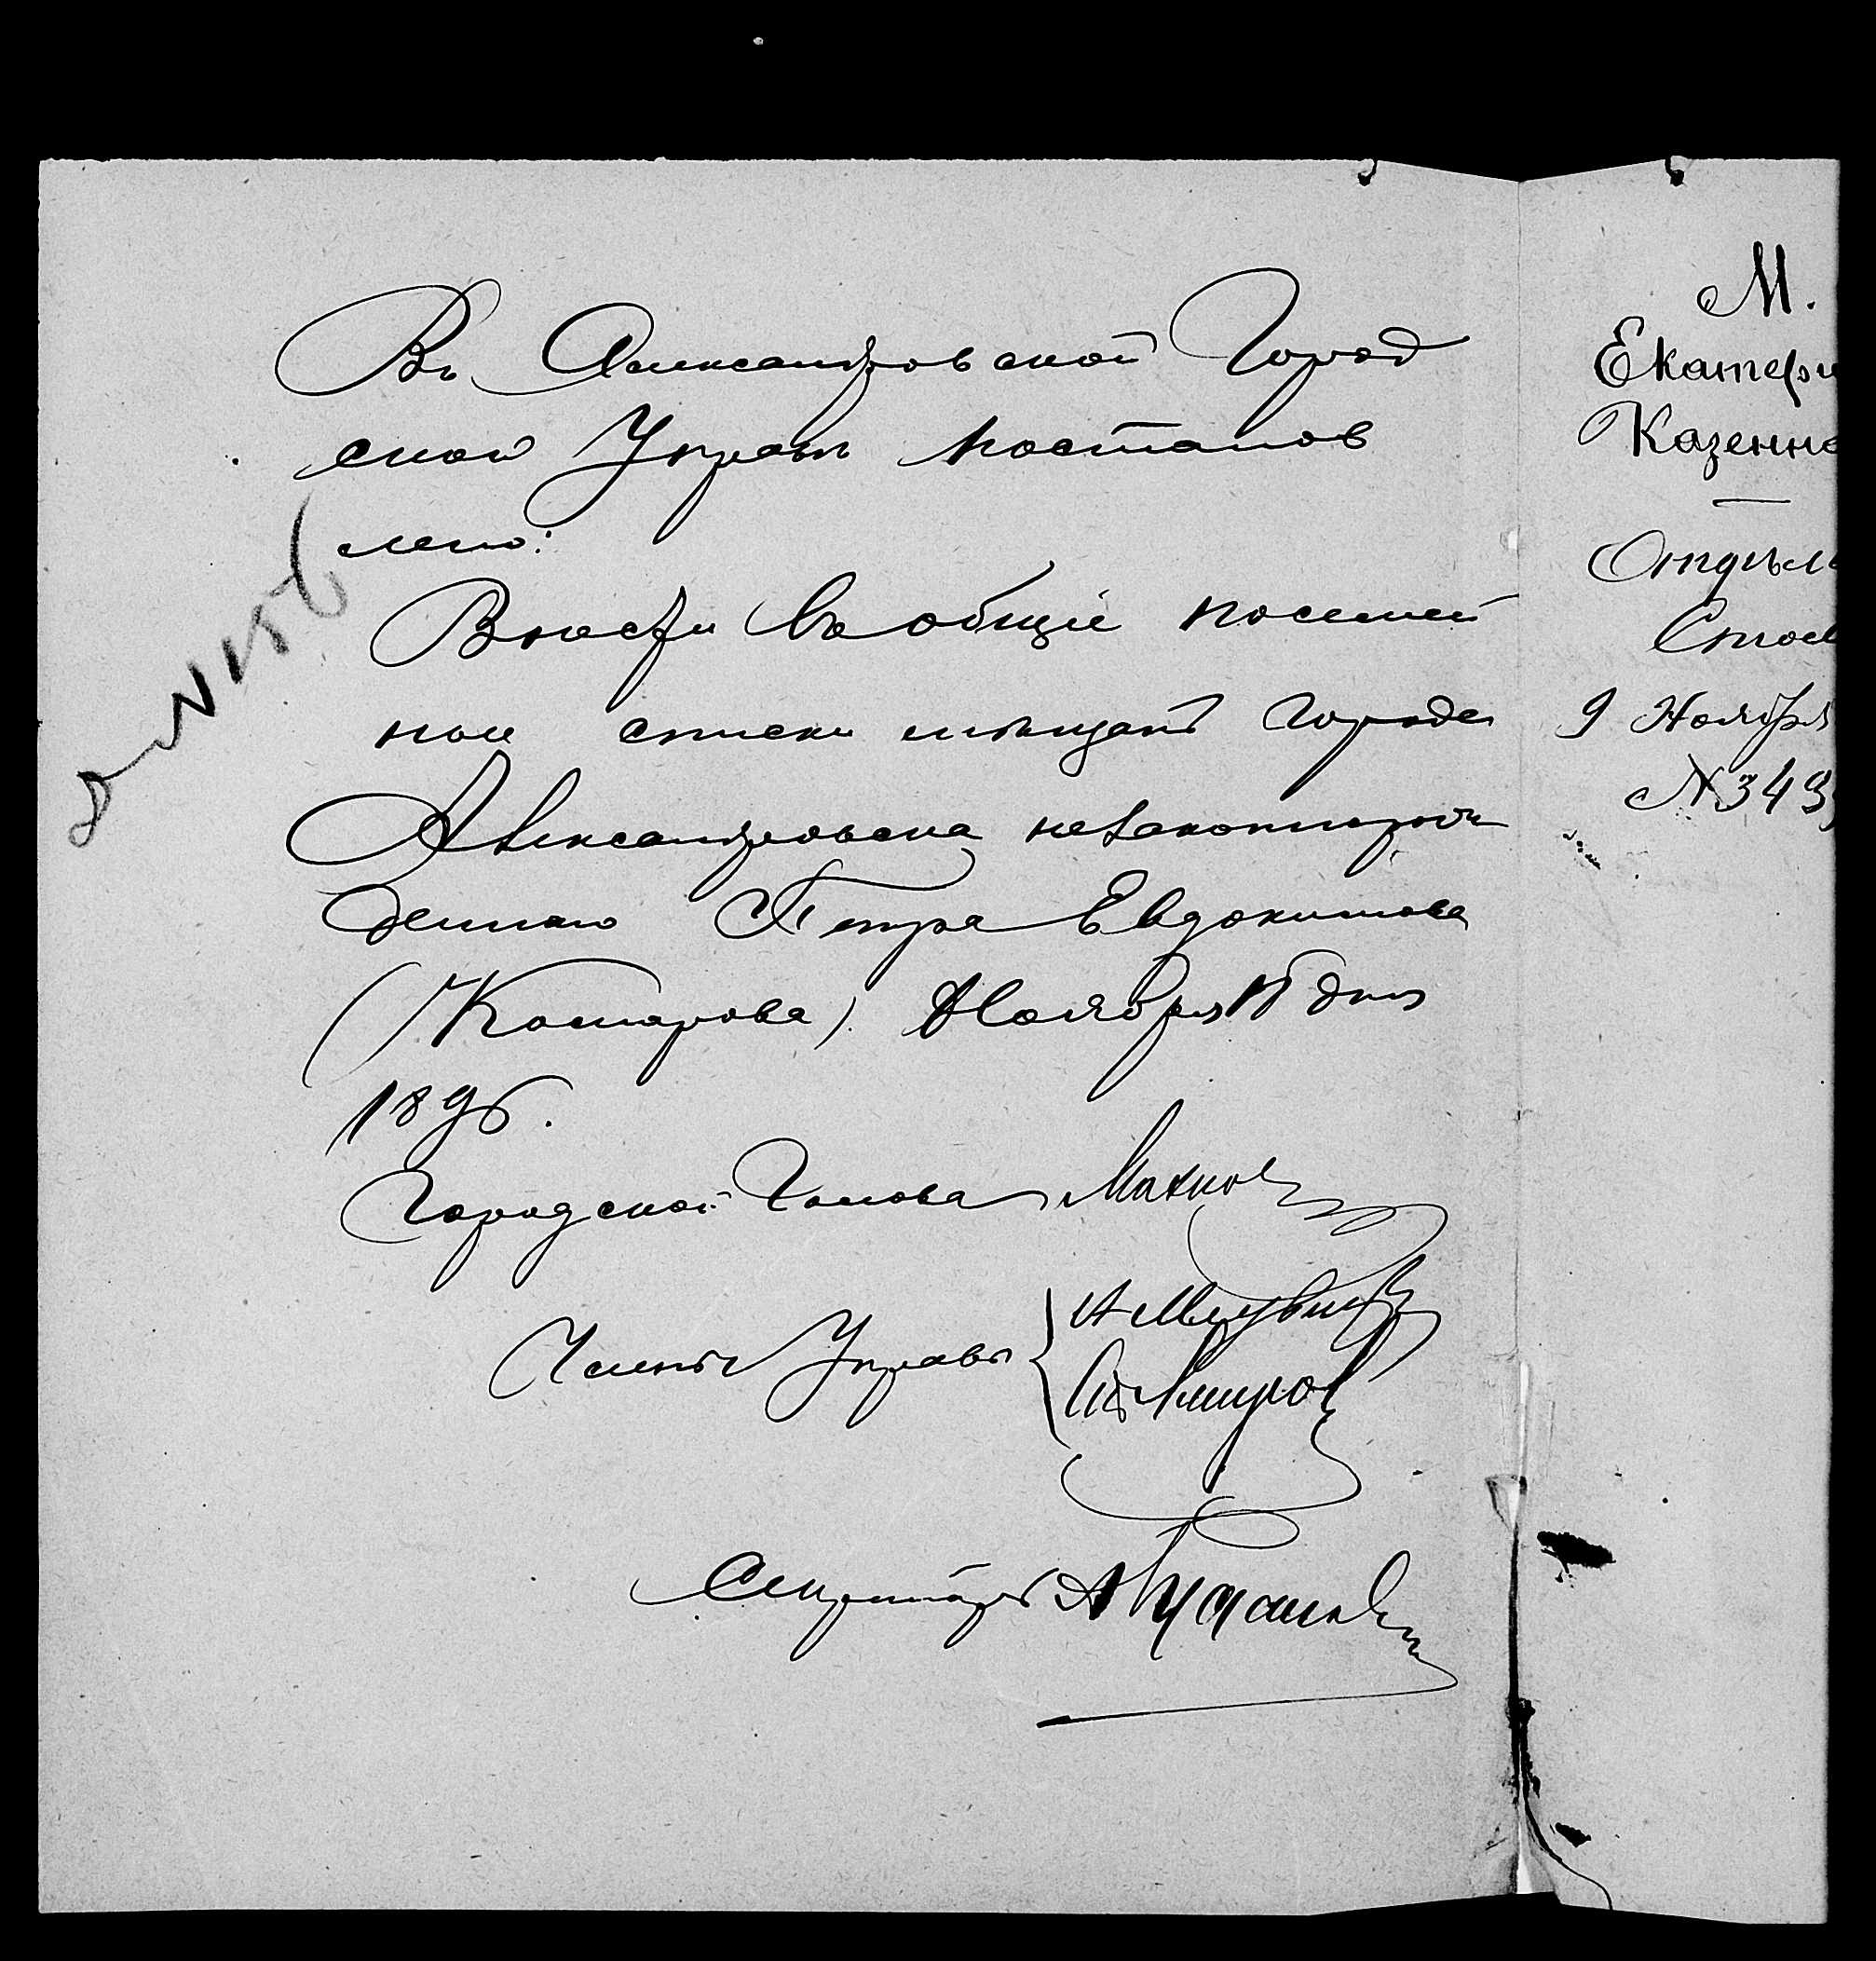 Въ Александровской Город
ской Управѣ постанов
лено:
Внести въ общіе посемей
ные списки мѣщанъ города
Александровска незаконнорож
деннаго Петра Евдокимова
(Комарова). Ноября 15 дня
1896.
Городской Голова Махно
Члены Управы
Секретарь А
М.
Екатери
Казенна
Отдѣл
Стол
9 Ноября
№ 349